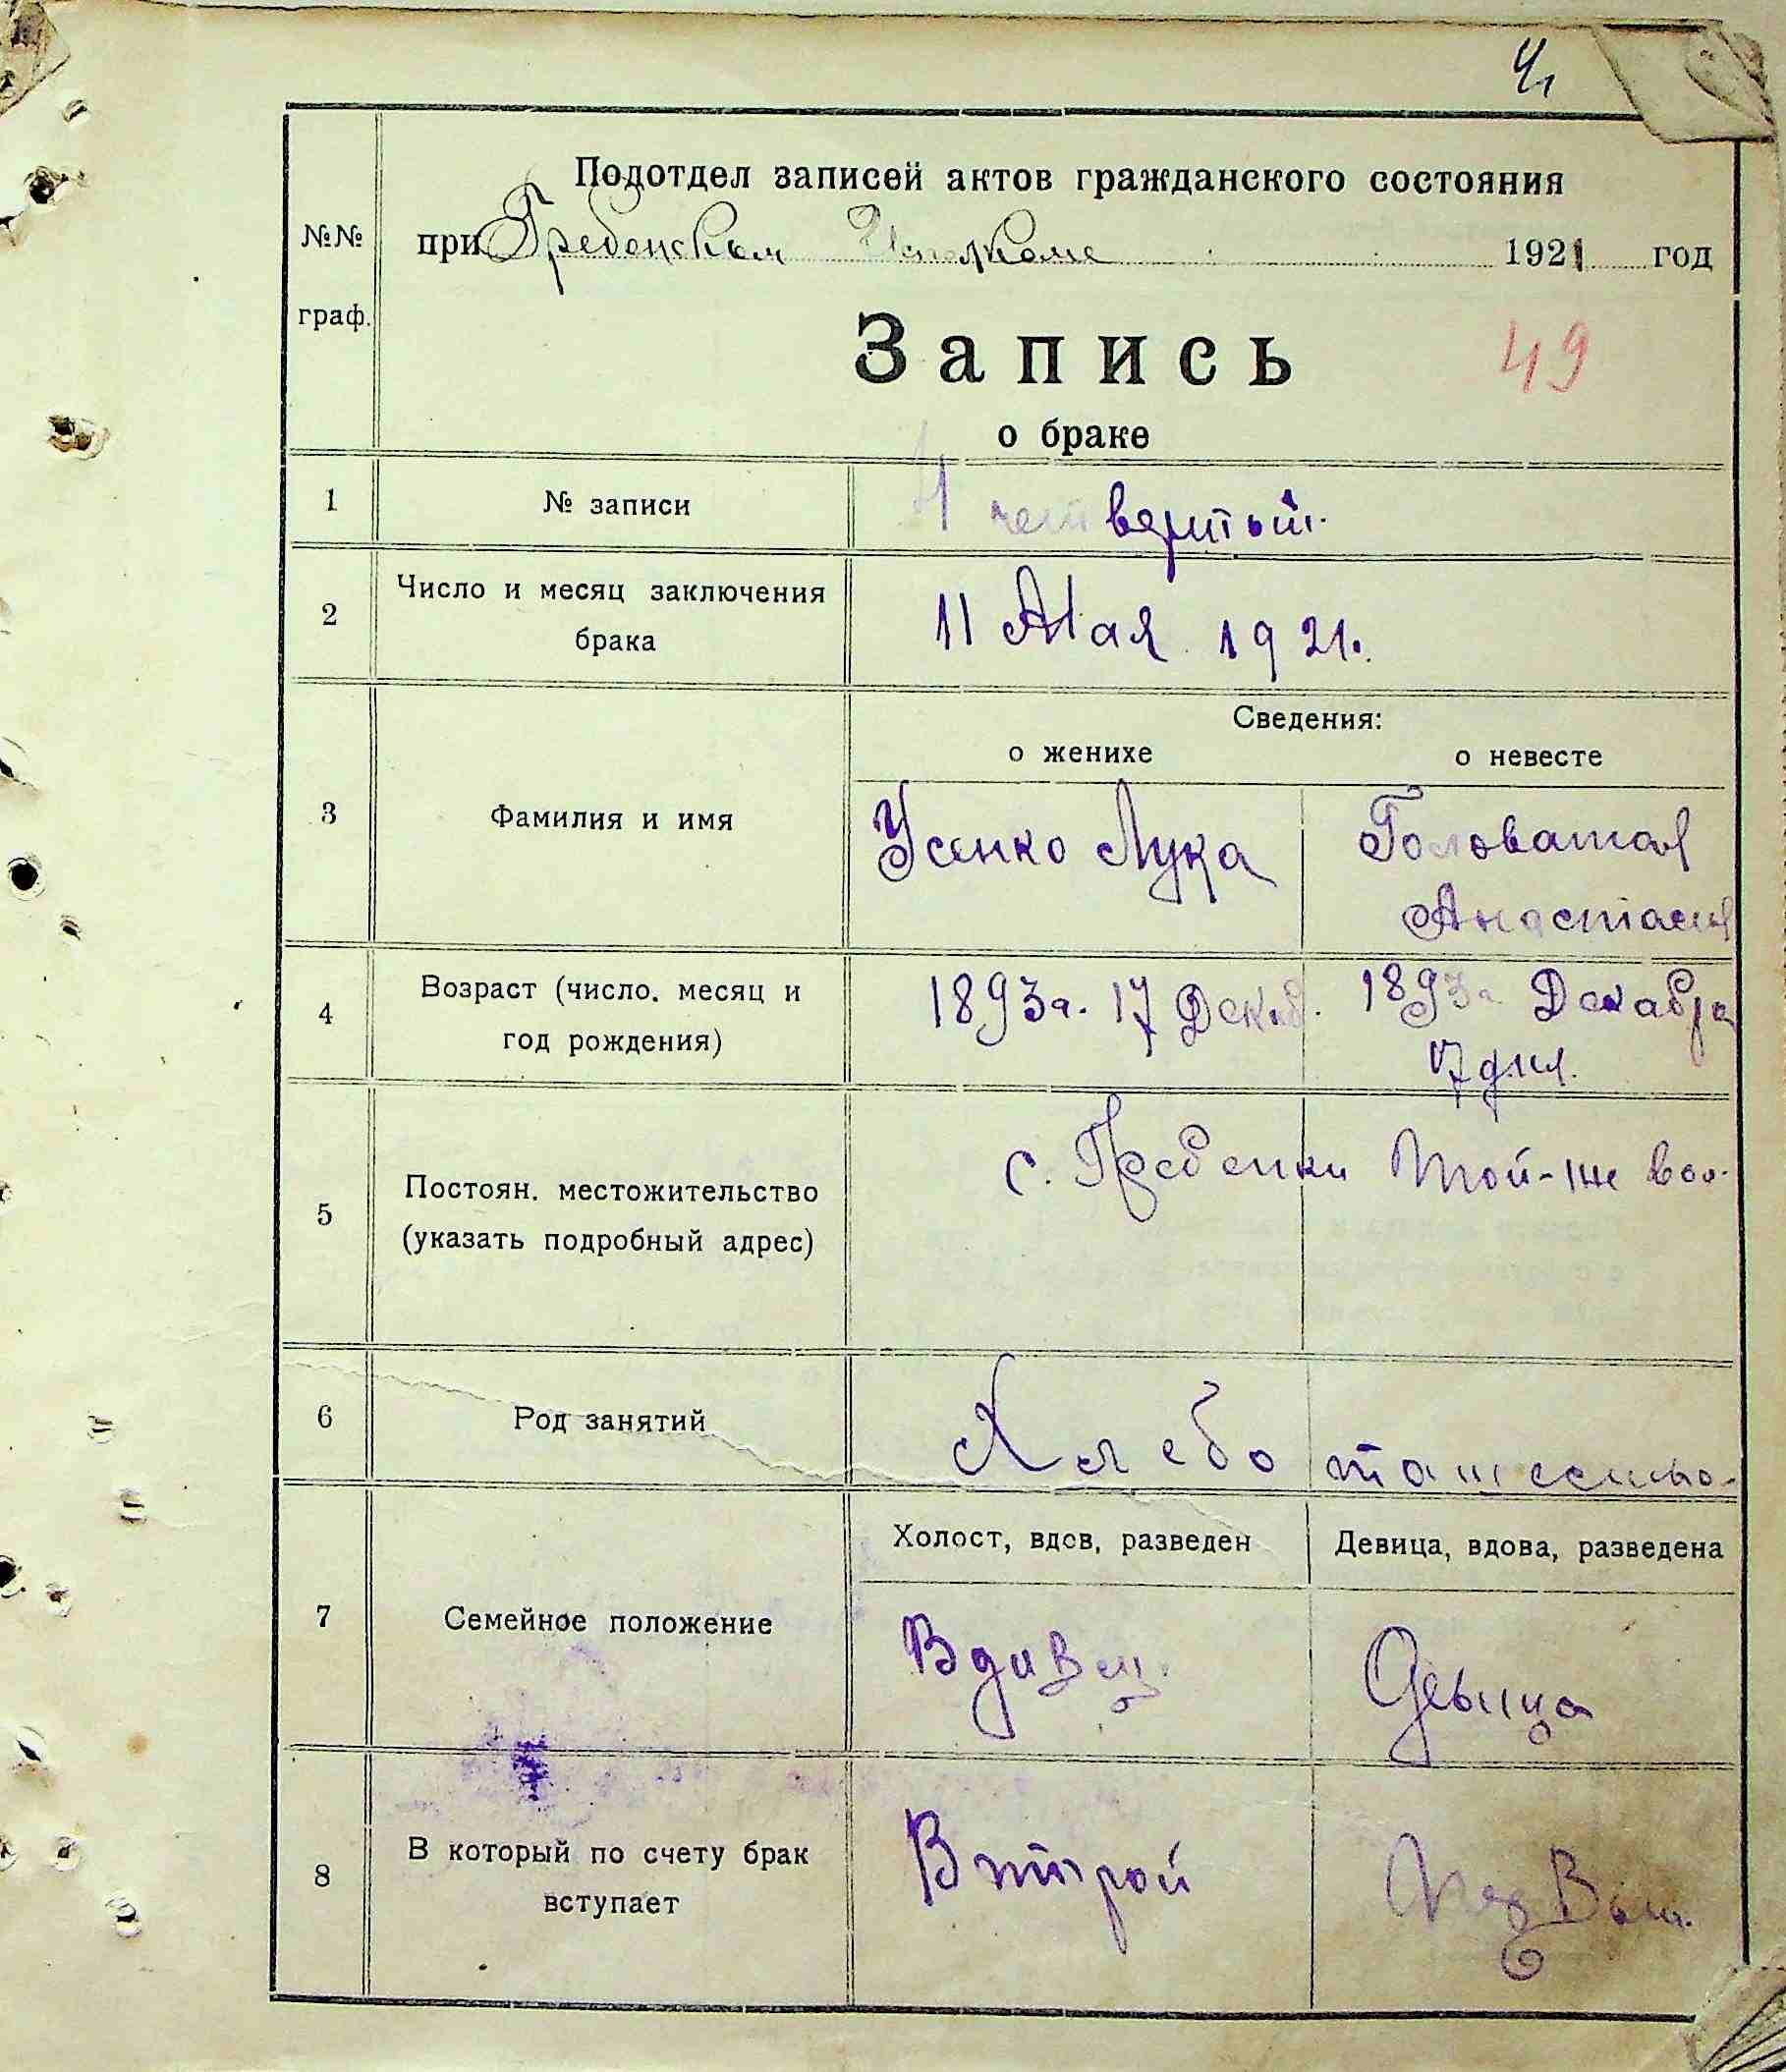 4
Подотдел записей актов гражданского состояния
№№
при Гребенском Исполкоме 1921 год
граф.
Запись
49
о браке
1 № записи 4 четвертый.
2 Число и месяц заключения
брака
11 Мая 1921.
Сведения:
о женихе о невесте
3 Фамилия и имя Усенко Лука Головатая
Анастасия
4 Возраст (число, месяц и
год рождения)
1893 г. 17 Декаб. 1893 г. Декабря
17 дня.
5 Постоян. местожительство
(указать подробный адрес)
с. Гребенки той-же вол.
6 Род занятий Хлебо пашество
Холост, вдов, разведен Девица, вдова, разведена
7 Семейное положение Вдивец. Девыца
8 В который по счету брак
вступает
Второй Первый